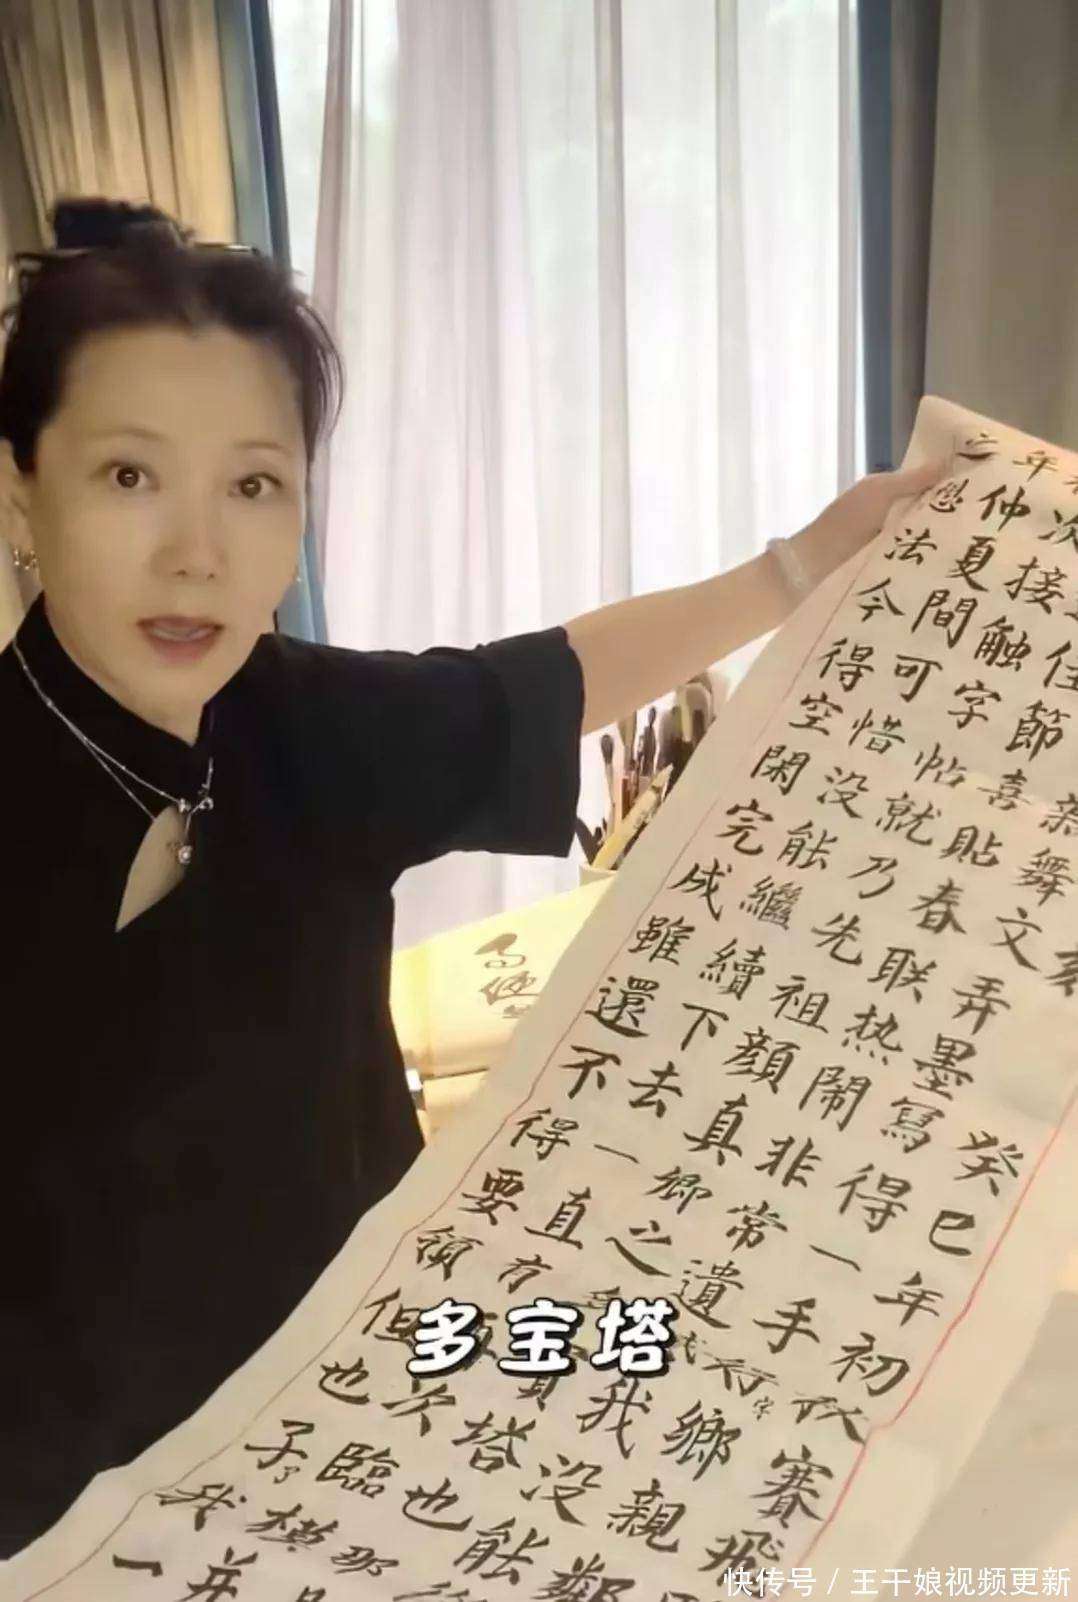 癸巳年初秋賽飛
舞文弄墨寫得一手行字鄉親
節喜貼春联热鬧非常遺我没能鄰
年次接觸字帖就乃先祖顏真卿之塔也那
之仲夏間可惜没能繼續下去一直方次臨摸并
法今得空閑完成雖還不得要領但也子我一
多宝塔
快传号 / 王干娘视频更新